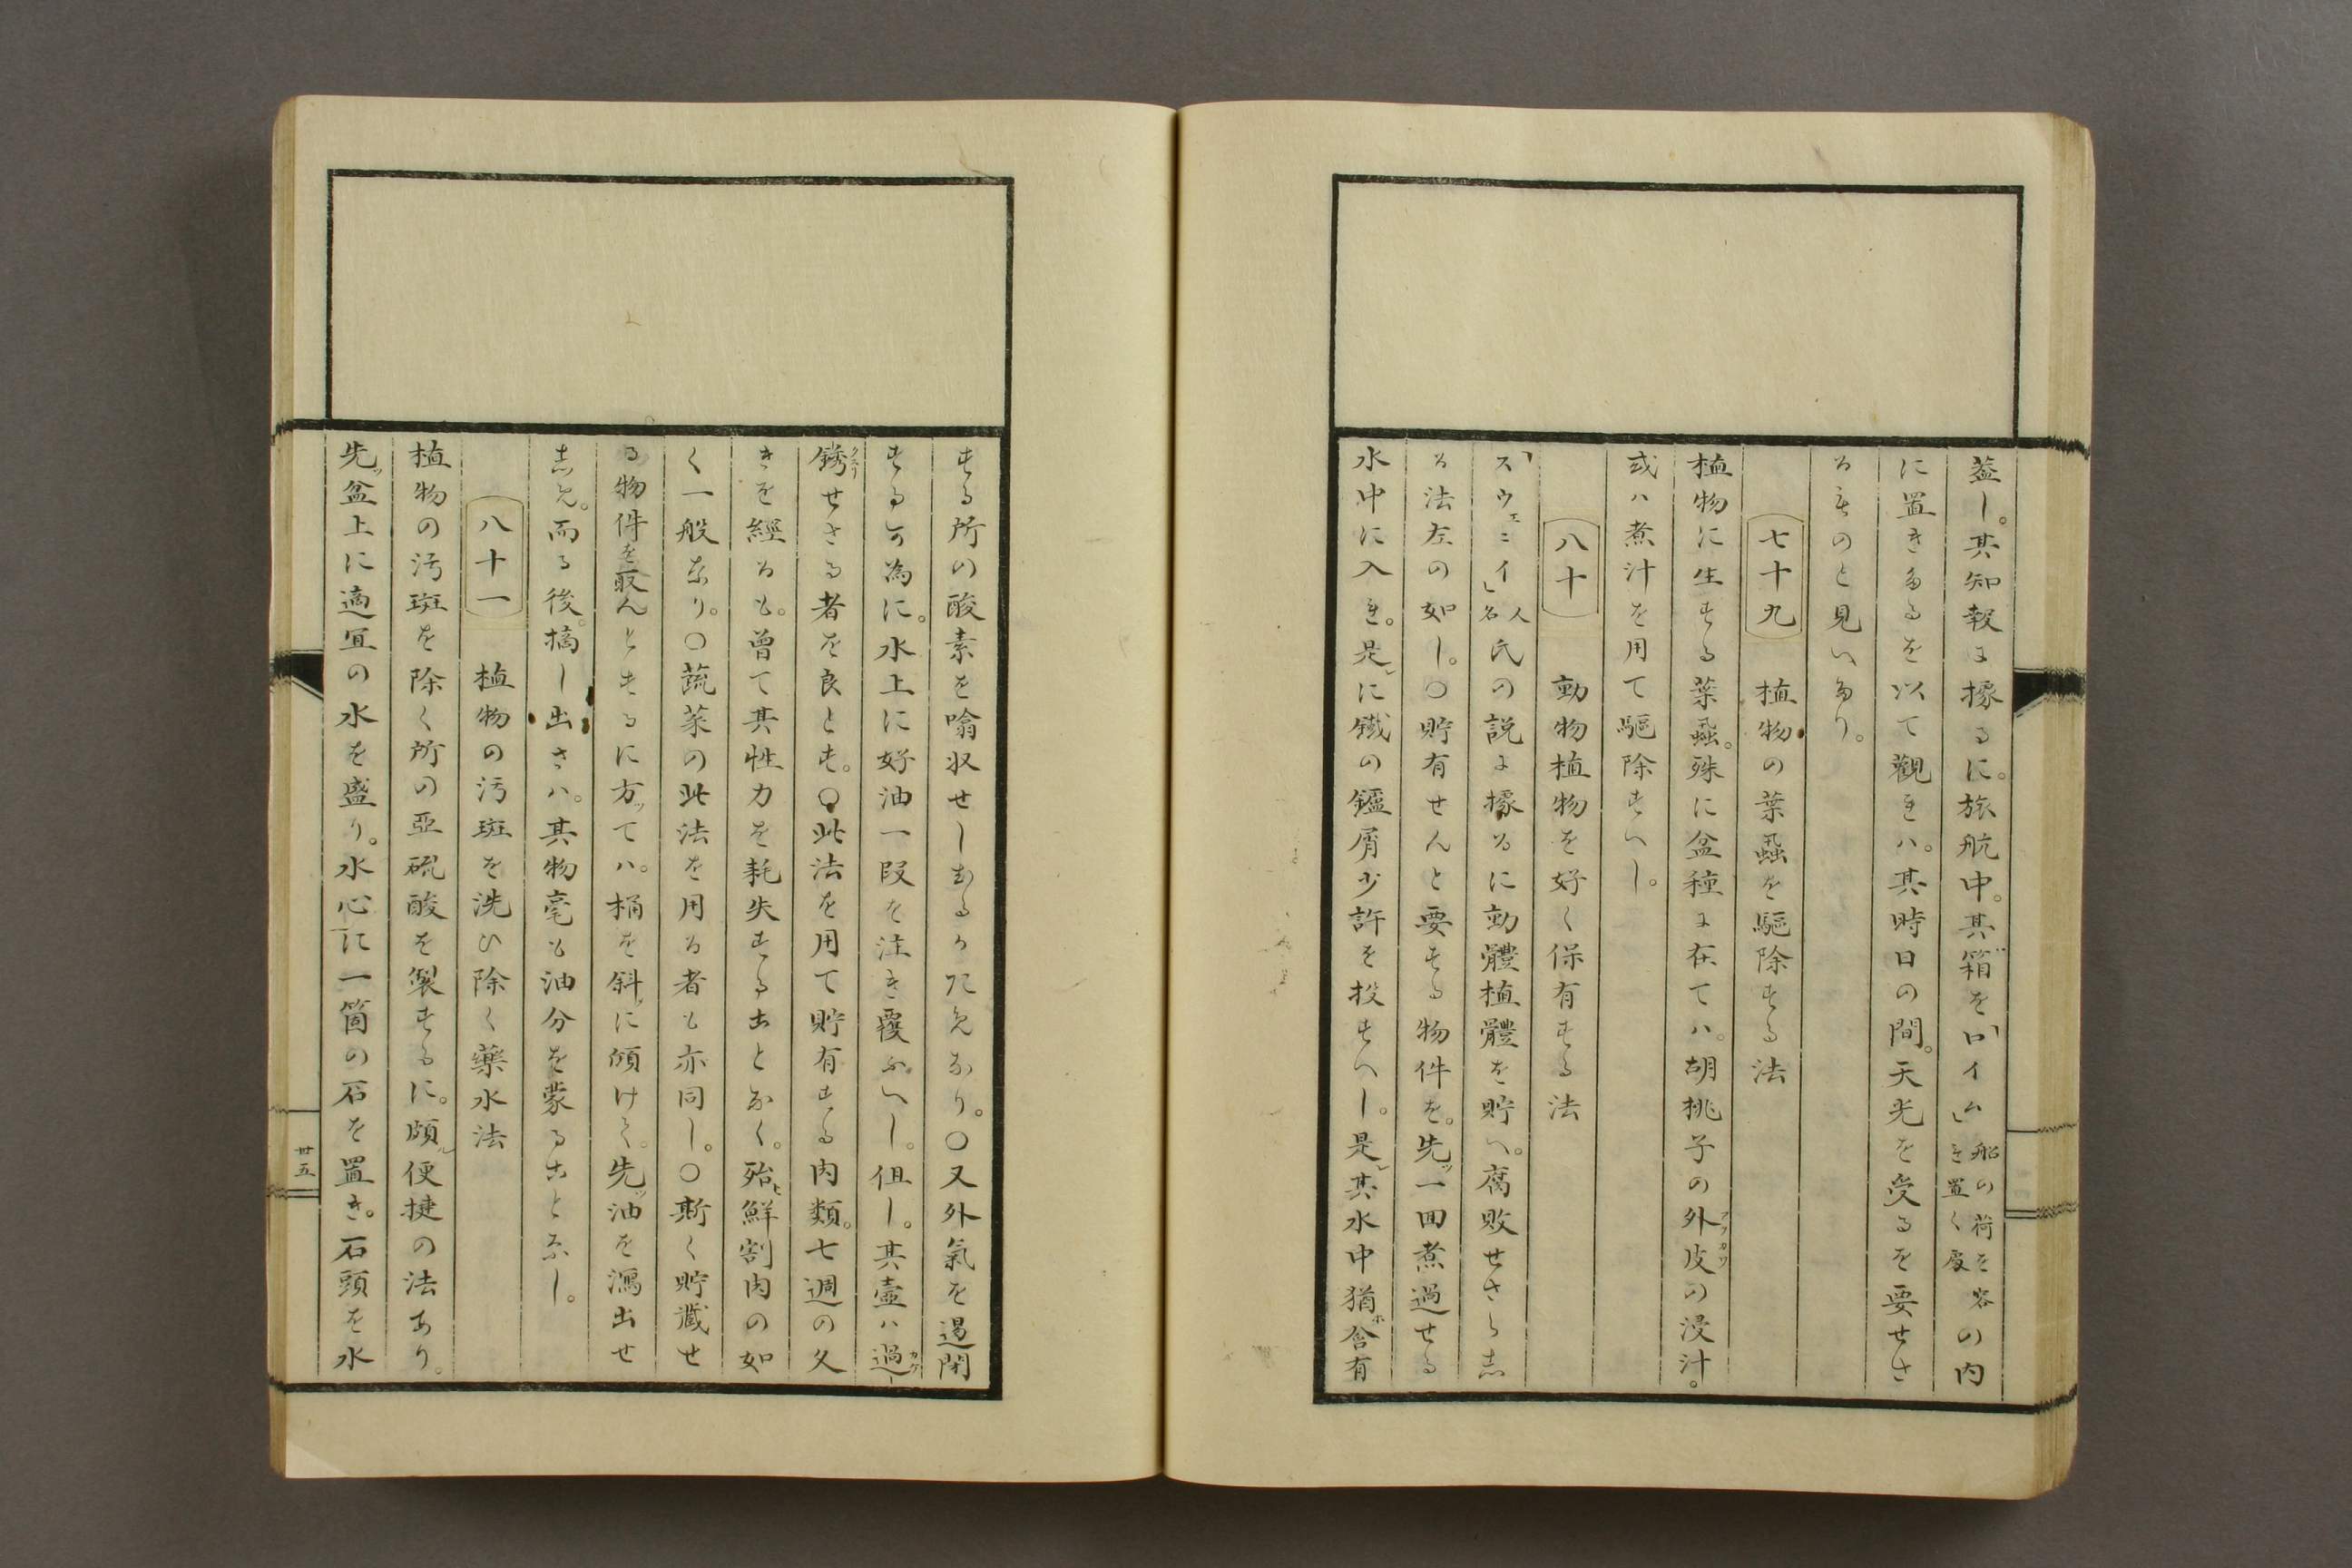 蓋し。其知報に據るに。旅航中。其箱を「ロイム」船の荷を容れ置く處の内
に置きたるを以て觀れハ。其時日の間。天光を受るを要せさ
るものと見へたり。
七十九 植物の葉蝨を驅除する法
植物に生する葉蝨。殊に盆種に在てハ。胡桃子の外皮アヲカワの浸汁。
或ハ煮汁を用て驅除すへし。
八十 動物植物を好く保有する法
「スウェニイ」人名氏の説に據るに動體植體を貯へ。腐敗せさらし
る法左の如し。〇貯有せんと要する物件を。先ッ一回煮過せる
水中に入れ。是レに鐵の鑪屑少許を投すへし。是レ其水中猶ホ含有
する所の酸素を噏収せしむるカためなり。〇又外氣を遏閉
するか為に。水上に好油一段を注き覆ふへし。但し。其壷ハ過
銹せさる者を良とす。〇此法を用て貯有する肉類。七週の久
きを經るも。曾て其性力を耗失することなく。殆ヒ鮮割肉の如
く一般なり。〇蔬菜の此法を用る者も亦同し。〇斯く貯藏せ
る物件を取んとするに方ッてハ。桶を斜に傾け。先ッ油を瀉出せ
しめ。而る後。摘し出さハ。其物毫も油分を蒙ることなし。
八十一 植物の汚斑を洗ひ除く藥水法
植物の汚斑を除く所の亞硫酸を製するに。頗ル便捷の法あり。
先ッ盆上に適宜の水を盛り。水心に一箇の石を置き。石頭を水
卅五